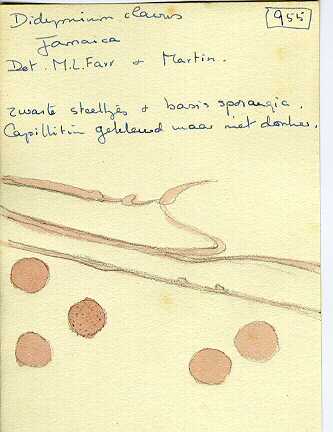 Didymium clavus
955
Jamaica
Det. M.L. Farr & Martin.
zwarte steeltjes & basis sporangia.
Capillitia gekleurd maar niet donker.